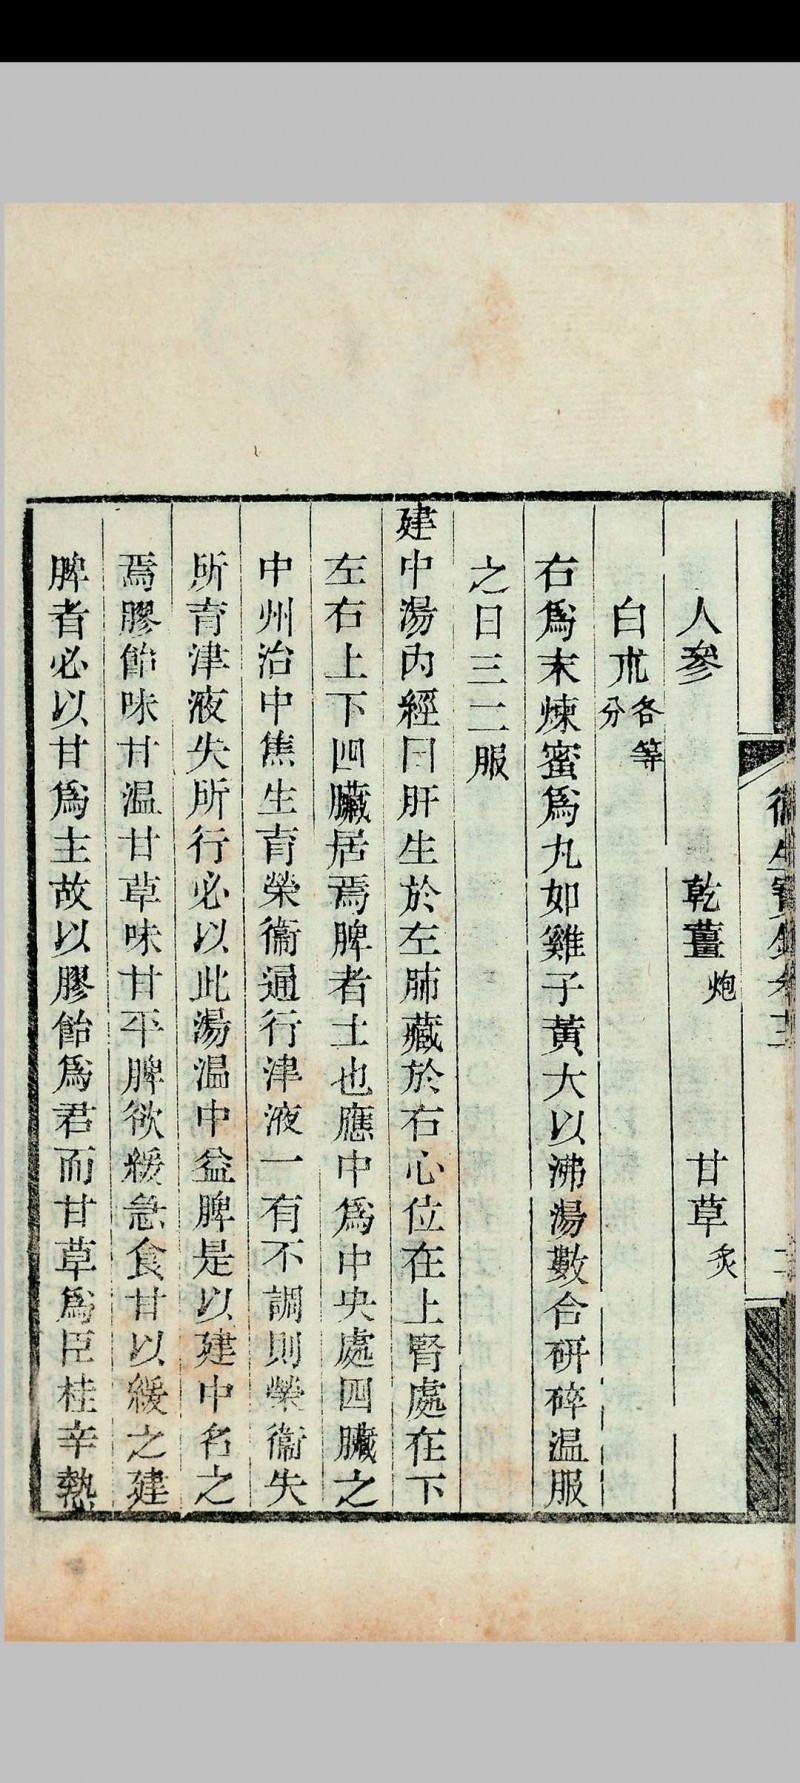 衞生寶鑑卷三
二
人參　乾薑炮　甘草炙
白朮各等分
右爲末煉蜜爲丸如雞子黃大以沸湯數合研碎温服
之日三二服
建中湯內經曰肝生於左肺藏於右心位在上腎處在下
左右上下四臟居焉脾者土也應中爲中央處四臟之
中州治中焦生育榮衞通行津液一有不調則榮衞失
所育津液失所行必以此湯温中益脾是以建中名之
焉膠飴味甘温甘草味甘平脾欲緩急食甘以緩之建
脾者必以甘爲主故以膠飴爲君而甘草爲臣桂辛熱